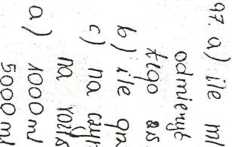 97. a) ile ml
odmierzył
tego as
b) ile
c) na czym
na
a) 1000 ml
5000 ml